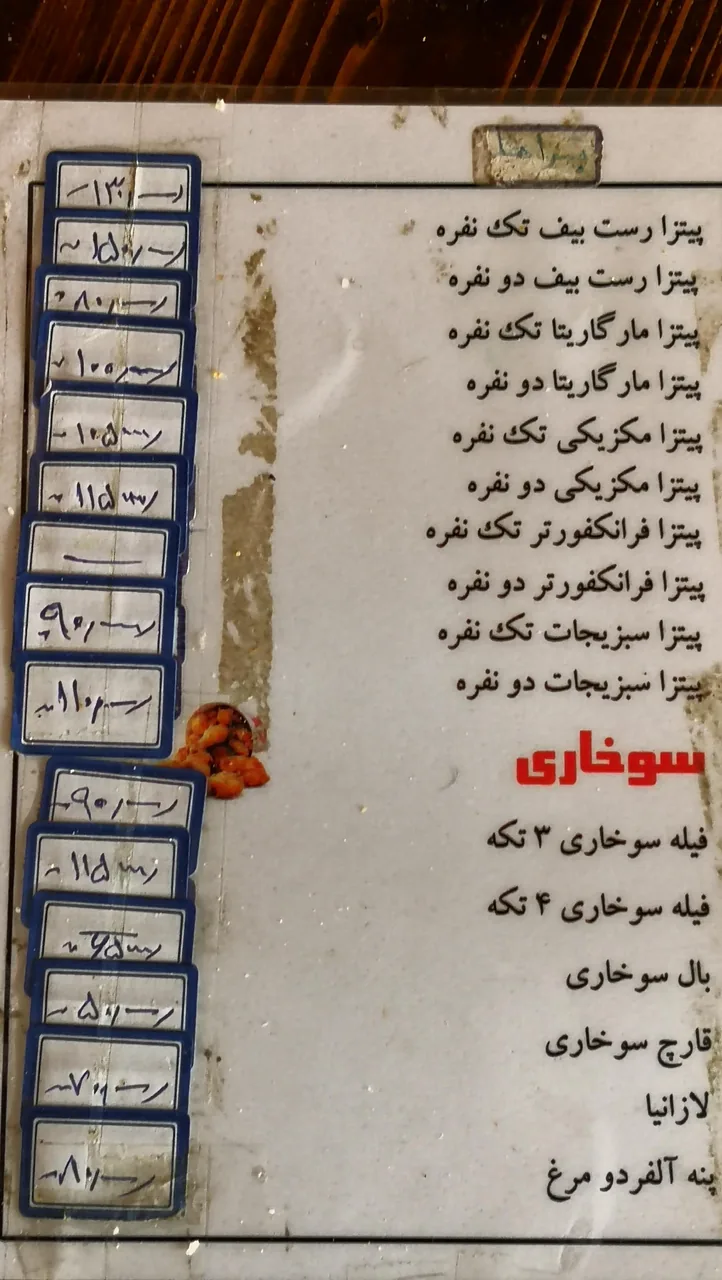 پیتزا ها
پیتزا رست بیف تک نفره ۱۳۰/
پیتزا رست بیف دو نفره ۱۵۰/
پیتزا مارگاریتا تک نفره ۸۰/
پیتزا مارگاریتا دو نفره ۱۰۰/
پیتزا مکزیکی تک نفره ۱۰۵
پیتزا مکزیکی دو نفره ۱۱۵
پیتزا فرانکفورتر تک نفره
پیتزا فرانکفورتر دو نفره
پیتزا سبزیجات تک نفره ۹۰/
پیتزا سبزیجات دو نفره ۱۱۰/
سوخاری
فیله سوخاری ۳ تکه ۹۰/
فیله سوخاری ۴ تکه ۱۱۵
بال سوخاری
قارچ سوخاری ۵۰/
لازانیا ۷۰/
پنه آلفردو مرغ ۸۰/